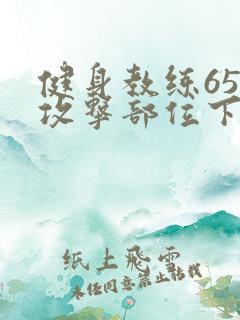 健身教练65
攻擊部位下
纸上飛雲
未经同意禁止转载